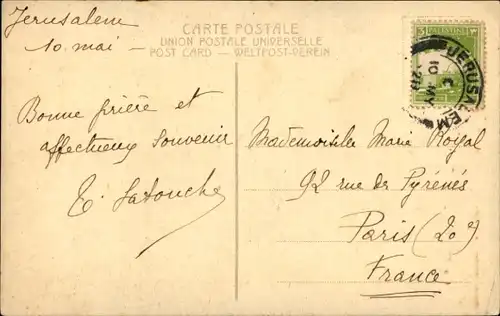 Jerusalem
10 mai -
CARTE POSTALE
UNION POSTALE UNIVERSELLE
POST CARD — WELTPOST-VEREIN
Bonne prière et
affectueux souvenir
E. Latouche
3 PALESTINE ٣
JERUSALEM
C
10 MY
Mademoiselle Marie Royal
92 rue des Pyrénés
Paris (20e)
France